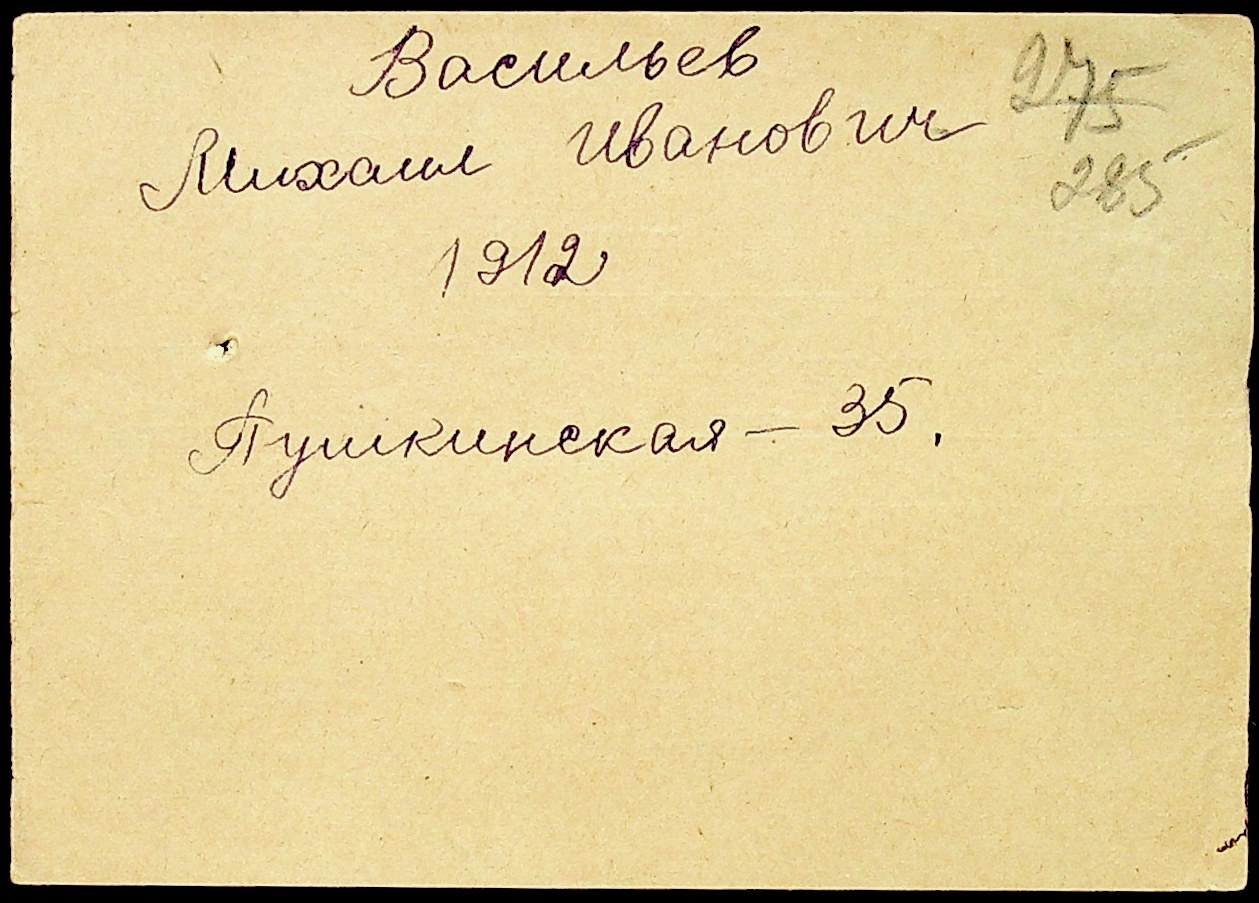 Васильев
275
Михаил Иванович
285
1912
Пушкинская – 35.